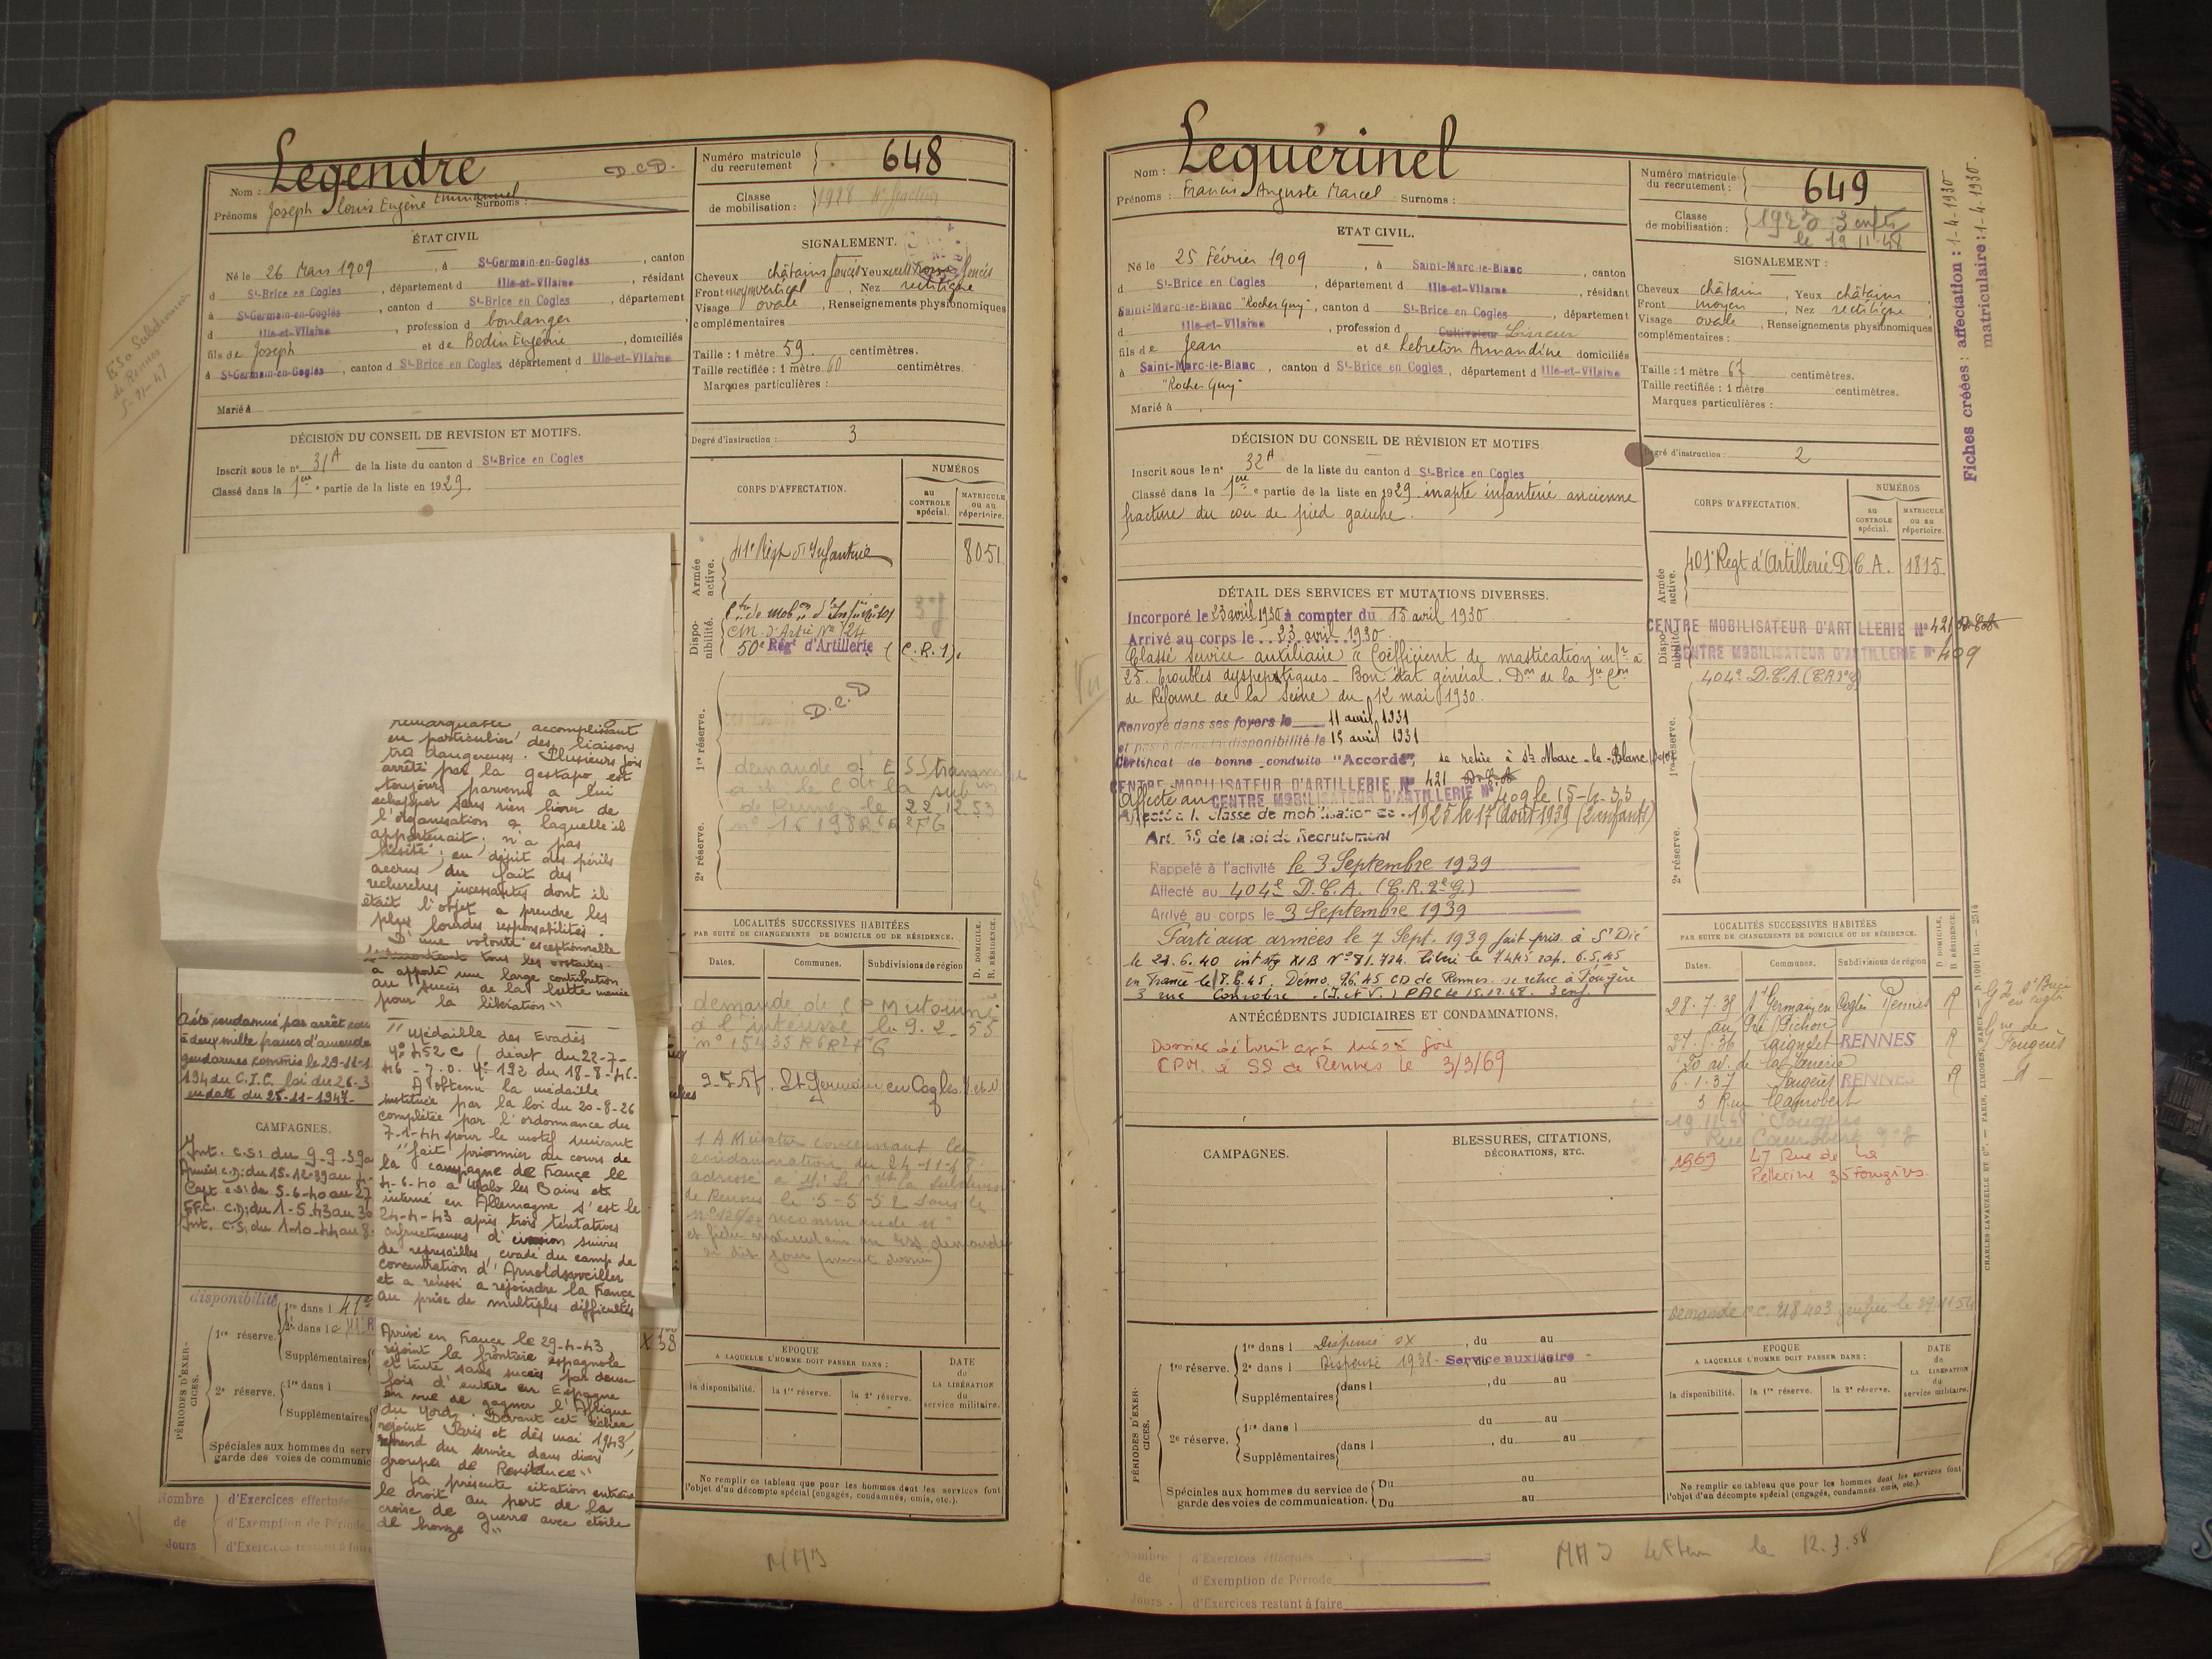 Nom : Legendre
D.C.D.
Prénoms Joseph Louis Eugène Emmanuel Surnoms :
Numéro matricule du recrutement 648
Classe de mobilisation : 1928
ÉTAT CIVIL
Né le 26 Mars 1909, à St-Germain-en-Cogles, canton
d St-Brice en Cogles, département d Ille-et-Vilaine, résidant
à St-Germain-en-Cogles, canton d St-Brice en Cogles, département
d Ille-et-Vilaine, profession d boulanger
fils de Joseph et de Bodin Eugénie, domiciliés
à St-Germain-en-Cogles, canton d St-Brice en Cogles département d Ille-et-Vilaine
Marié à
SIGNALEMENT.
Cheveux châtains foncés Yeux foncés
Front moy vertical Nez rectiligne
Visage ovale, Renseignements physionomiques
complémentaires
Taille : 1 mètre 59 centimètres.
Taille rectifiée : 1 mètre 60 centimètres.
Marques particulières :
Degré d'instruction : 3
DÉCISION DU CONSEIL DE REVISION ET MOTIFS.
Inscrit sous le n° 31A de la liste du canton d St-Brice en Cogles
Classé dans la 1ère partie de la liste en 1929.
CORPS D'AFFECTATION.
NUMÉROS
au CONTROLE spécial.
MATRICULE ou au répertoire.
Armée active.
41e Régt d'Infanterie 8051
Disponibilité.
C.M. d'Artie N° 124
50e Régt d'Artillerie (C.R.1).
1re réserve.
D.C.D
demande d E S S transmise
de Rennes le 22 12 53
2e réserve.
remarquable accomplissant
en particulier des liaisons
très dangereuses. Plusieurs fois
arrêté par la gestapo est
toujours parvenu a lui
echapper sans rien livrer de
l'organisation a laquelle il
appartenait; n'a pas
hésité, en dépit des périls
accrus du fait des
recherches incessantes dont il
était l'objet a prendre les
plus lourdes responsabilités.
D'une volonté exceptionnelle
tous les obstacles
a apporté une large contribution
au succès de la lutte menée
pour la libération"
"Médaille des Evadés
N° 452 C (décret du 22-7-
46 - J.O. N° 192 du 18-8-46-
A obtenu la médaille
instituée par la loi du 20-8-26
complétée par l'ordonnance du
7-1-44 pour le motif suivant
"fait prisonnier au cours de
la campagne de France le
4-6-40 a Malo les Bains et
interné en Allemagne s'est le
24-4-43 après trois tentatives
infructueuses d'évasion suivies
de represailles, evadé du camp de
concentration d'Arnoldsweiller
et a réussi a rejoindre la France
au prise de multiples difficultés
Arrivé en France le 29-4-43,
rejoint la frontière espagnole
et tente sans succès par deux
fois d'entrer en Espagne
en vue de gagner l'Afrique
du Nord. Devant cet échec
rejoint Paris et dès mai 1943,
reprend du service dans divers
groupes de Résistance"
La présente citation entraine
le droit au port de la
croix de guerre avec étoile
de bronze"
A été condamné par arrêt
à deux mille francs d'amende
gendarmes commis le 29-11-1
194 du C.I.C. loi du 26-3
en date du 25-11-1947-
CAMPAGNES.
Int. C.S: du 9-9-39 a
Armées C.D: du 15-12-39 au 4-
Capt C.S: du 5-6-40 au 27
F.F.C. C.D: du 1-5-43 au 30
Int. C.S, du 1-10-44 au 8-
PÉRIODES D'EXERCICES.
disponibilité
1re réserve.
1re dans l 41e
2e dans l
Supplémentaires
2e réserve.
1re dans l
Supplémentaires
Spéciales aux hommes du serv
garde des voies de communic
Nombre de Jours
d'Exercices effectués
d'Exemption de Période
d'Exercices restant à faire
LOCALITÉS SUCCESSIVES HABITÉES
PAR SUITE DE CHANGEMENTS DE DOMICILE OU DE RÉSIDENCE.
D. DOMICILE. R. RÉSIDENCE.
Dates. Communes. Subdivisions de région
demande de C P M
à l'intéressé le 9-2-55
9-5-57. St Germain en Cogles
condamnation du 24-11-48
de Rennes le 5-5-52 sous le
EPOQUE
A LAQUELLE L'HOMME DOIT PASSER DANS :
la disponibilité. la 1re réserve. la 2e réserve.
DATE de LA LIBÉRATION du service militaire.
No remplir ce tableau que pour les hommes dont les services font
l'objet d'un décompte spécial (engagés, condamnés, omis, etc.).
MAJ
Nom : Leguérinel
Prénoms : Francis Auguste Marcel Surnoms :
Numéro matricule du recrutement : 649
Classe de mobilisation :
le 19 11.48
ETAT CIVIL.
Né le 25 Février 1909, à Saint-Marc-le-Blanc, canton
d St-Brice en Cogles, département d Ille-et-Vilaine, résidant
Saint-Marc-le-Blanc "Rocher Guy", canton d St-Brice en Cogles, département
d Ille-et-Vilaine, profession d Cultivateur Livreur
fils de Jean et de Lebreton Armandine domiciliés
à Saint-Marc-le-Blanc, canton d St-Brice en Cogles, département d Ille-et-Vilaine
"Rocher Guy"
Marié à
SIGNALEMENT :
Cheveux châtains, Yeux châtains
Front moyen, Nez rectiligne
Visage ovale, Renseignements physionomiques
complémentaires :
Taille : 1 mètre 67 centimètres.
Taille rectifiée : 1 mètre centimètres.
Marques particulières :
Degré d'instruction : 2
Fiches créées : affectation : 1-4-1930
matriculaire : 1-4-1930.
DÉCISION DU CONSEIL DE RÉVISION ET MOTIFS.
Inscrit sous le n° 32A de la liste du canton d St-Brice en Cogles
Classé dans la 1ère partie de la liste en 1929 inapte infanterie ancienne
fracture du cou de pied gauche.
DÉTAIL DES SERVICES ET MUTATIONS DIVERSES.
Incorporé le 23 avril 1930 à compter du 15 avril 1930
Arrivé au corps le 23 avril 1930.
Classé service auxiliaire "Coefficient de mastication infr à
25. troubles dyspeptiques - Bon état général. Don de la 1ère Con
de Réforme de la Seine du 12 mai 1930.
Renvoyé dans ses foyers le 11 avril 1931
et passé dans la disponibilité le 15 avril 1931
Certificat de bonne conduite "Accordé", se retire à St Marc-le-Blanc
CENTRE MOBILISATEUR D'ARTILLERIE N° 421
Affecté au CENTRE MOBILISATEUR D'ARTILLERIE N° 409 le 15-4-33
Affecté à la classe de mobilisation de 1925 le 17 Août 1939 (2 enfants)
Art. 58 de la loi de Recrutement
Rappelé à l'activité le 3 Septembre 1939
Affecté au 404e D.C.A. (C.R. 2e g.)
Arrivé au corps le 3 Septembre 1939
Parti aux armées le 7 Sept. 1939 fait pris. à St Dié
le 22.6.40 int stg XI B N° 81.724. libéré le 7.4.45 rap. 6.5.45
en France le 8.6.45. Démo. 9.6.45 CD de Rennes. se retire à Fougère
3 rue Canrobert (I. et V.) PAC le 15.12.48. 3 enf.
ANTÉCÉDENTS JUDICIAIRES ET CONDAMNATIONS.
CPM. à SS de Rennes le 3/3/69
CORPS D'AFFECTATION.
NUMÉROS
au CONTROLE spécial.
MATRICULE ou au répertoire.
Armée active.
401e Regt d'Artillerie D.C.A. 1815
Disponibilité.
CENTRE MOBILISATEUR D'ARTILLERIE N° 421
CENTRE MOBILISATEUR D'ARTILLERIE N° 409
404e D.C.A. (C.R 2e g)
1re réserve.
2e réserve.
LOCALITÉS SUCCESSIVES HABITÉES
PAR SUITE DE CHANGEMENTS DE DOMICILE OU DE RÉSIDENCE.
D. DOMICILE. R. RÉSIDENCE.
Dates. Communes. Subdivisions de région
28.7.35 St Germain en Cogles Rennes R
au Pré Pichon
Laignelet RENNES R
20 av. de la
6.1.37 Fougères RENNES R
3 Rue Canrobert
19 11 48 Fougères
Rue Canrobert
1969 47 Rue de la
Pellerine 35 Fougères.
CAMPAGNES.
BLESSURES, CITATIONS,
DÉCORATIONS, ETC.
PÉRIODES D'EXERCICES.
1re réserve.
1re dans l Dispensé, du au
2e dans l Dispensé 1938 - Service auxiliaire -
Supplémentaires dans l, du au
2e réserve.
1re dans l du au
Supplémentaires dans l, du au
Spéciales aux hommes du service de
garde des voies de communication.
Du au
Du au
EPOQUE
A LAQUELLE L'HOMME DOIT PASSER DANS :
la disponibilité. la 1re réserve. la 2e réserve.
DATE de LA LIBÉRATION du service militaire.
No remplir ce tableau que pour les hommes dont les services font
l'objet d'un décompte spécial (engagés, condamnés, omis, etc.).
CHARLES-LAVAUZELLE ET Cie. — PARIS, LIMOGES, NANCY
Nombre de Jours
d'Exercices effectués
d'Exemption de Période
d'Exercices restant à faire
MAJ le 12.3.58